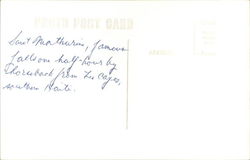 PHOTO POST CARD
Saut Mathurin, famous
falls one half-hour by
from Les Cayes,
southern Haiti.